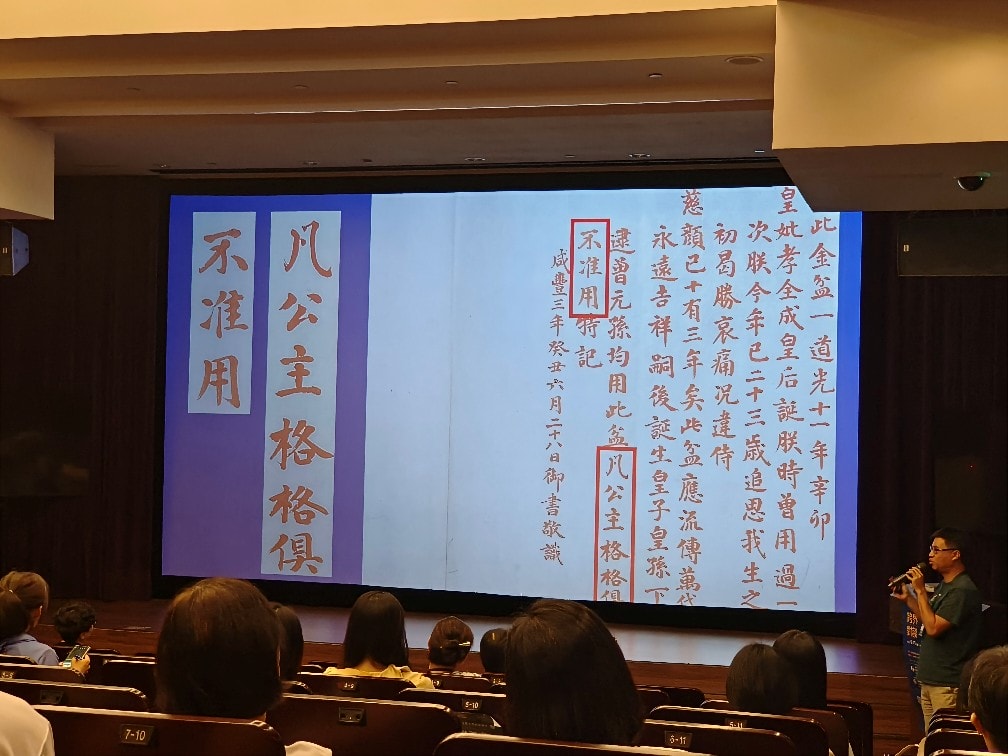 此金盆一道光十一年辛卯
皇妣孝全成皇后誕朕時曾用過一
次朕今年已二十三歲追思我生之
初曷勝哀痛況違侍
慈顏已十有三年矣此盆應流傳萬代
永遠吉祥嗣後誕生皇子皇孫下
逮曾元孫均用此盆凡公主格格俱
不准用特記
咸豐三年癸丑六月二十八日御書敬識
凡公主格格俱
不准用
7-10
5-10
6-11
5-11